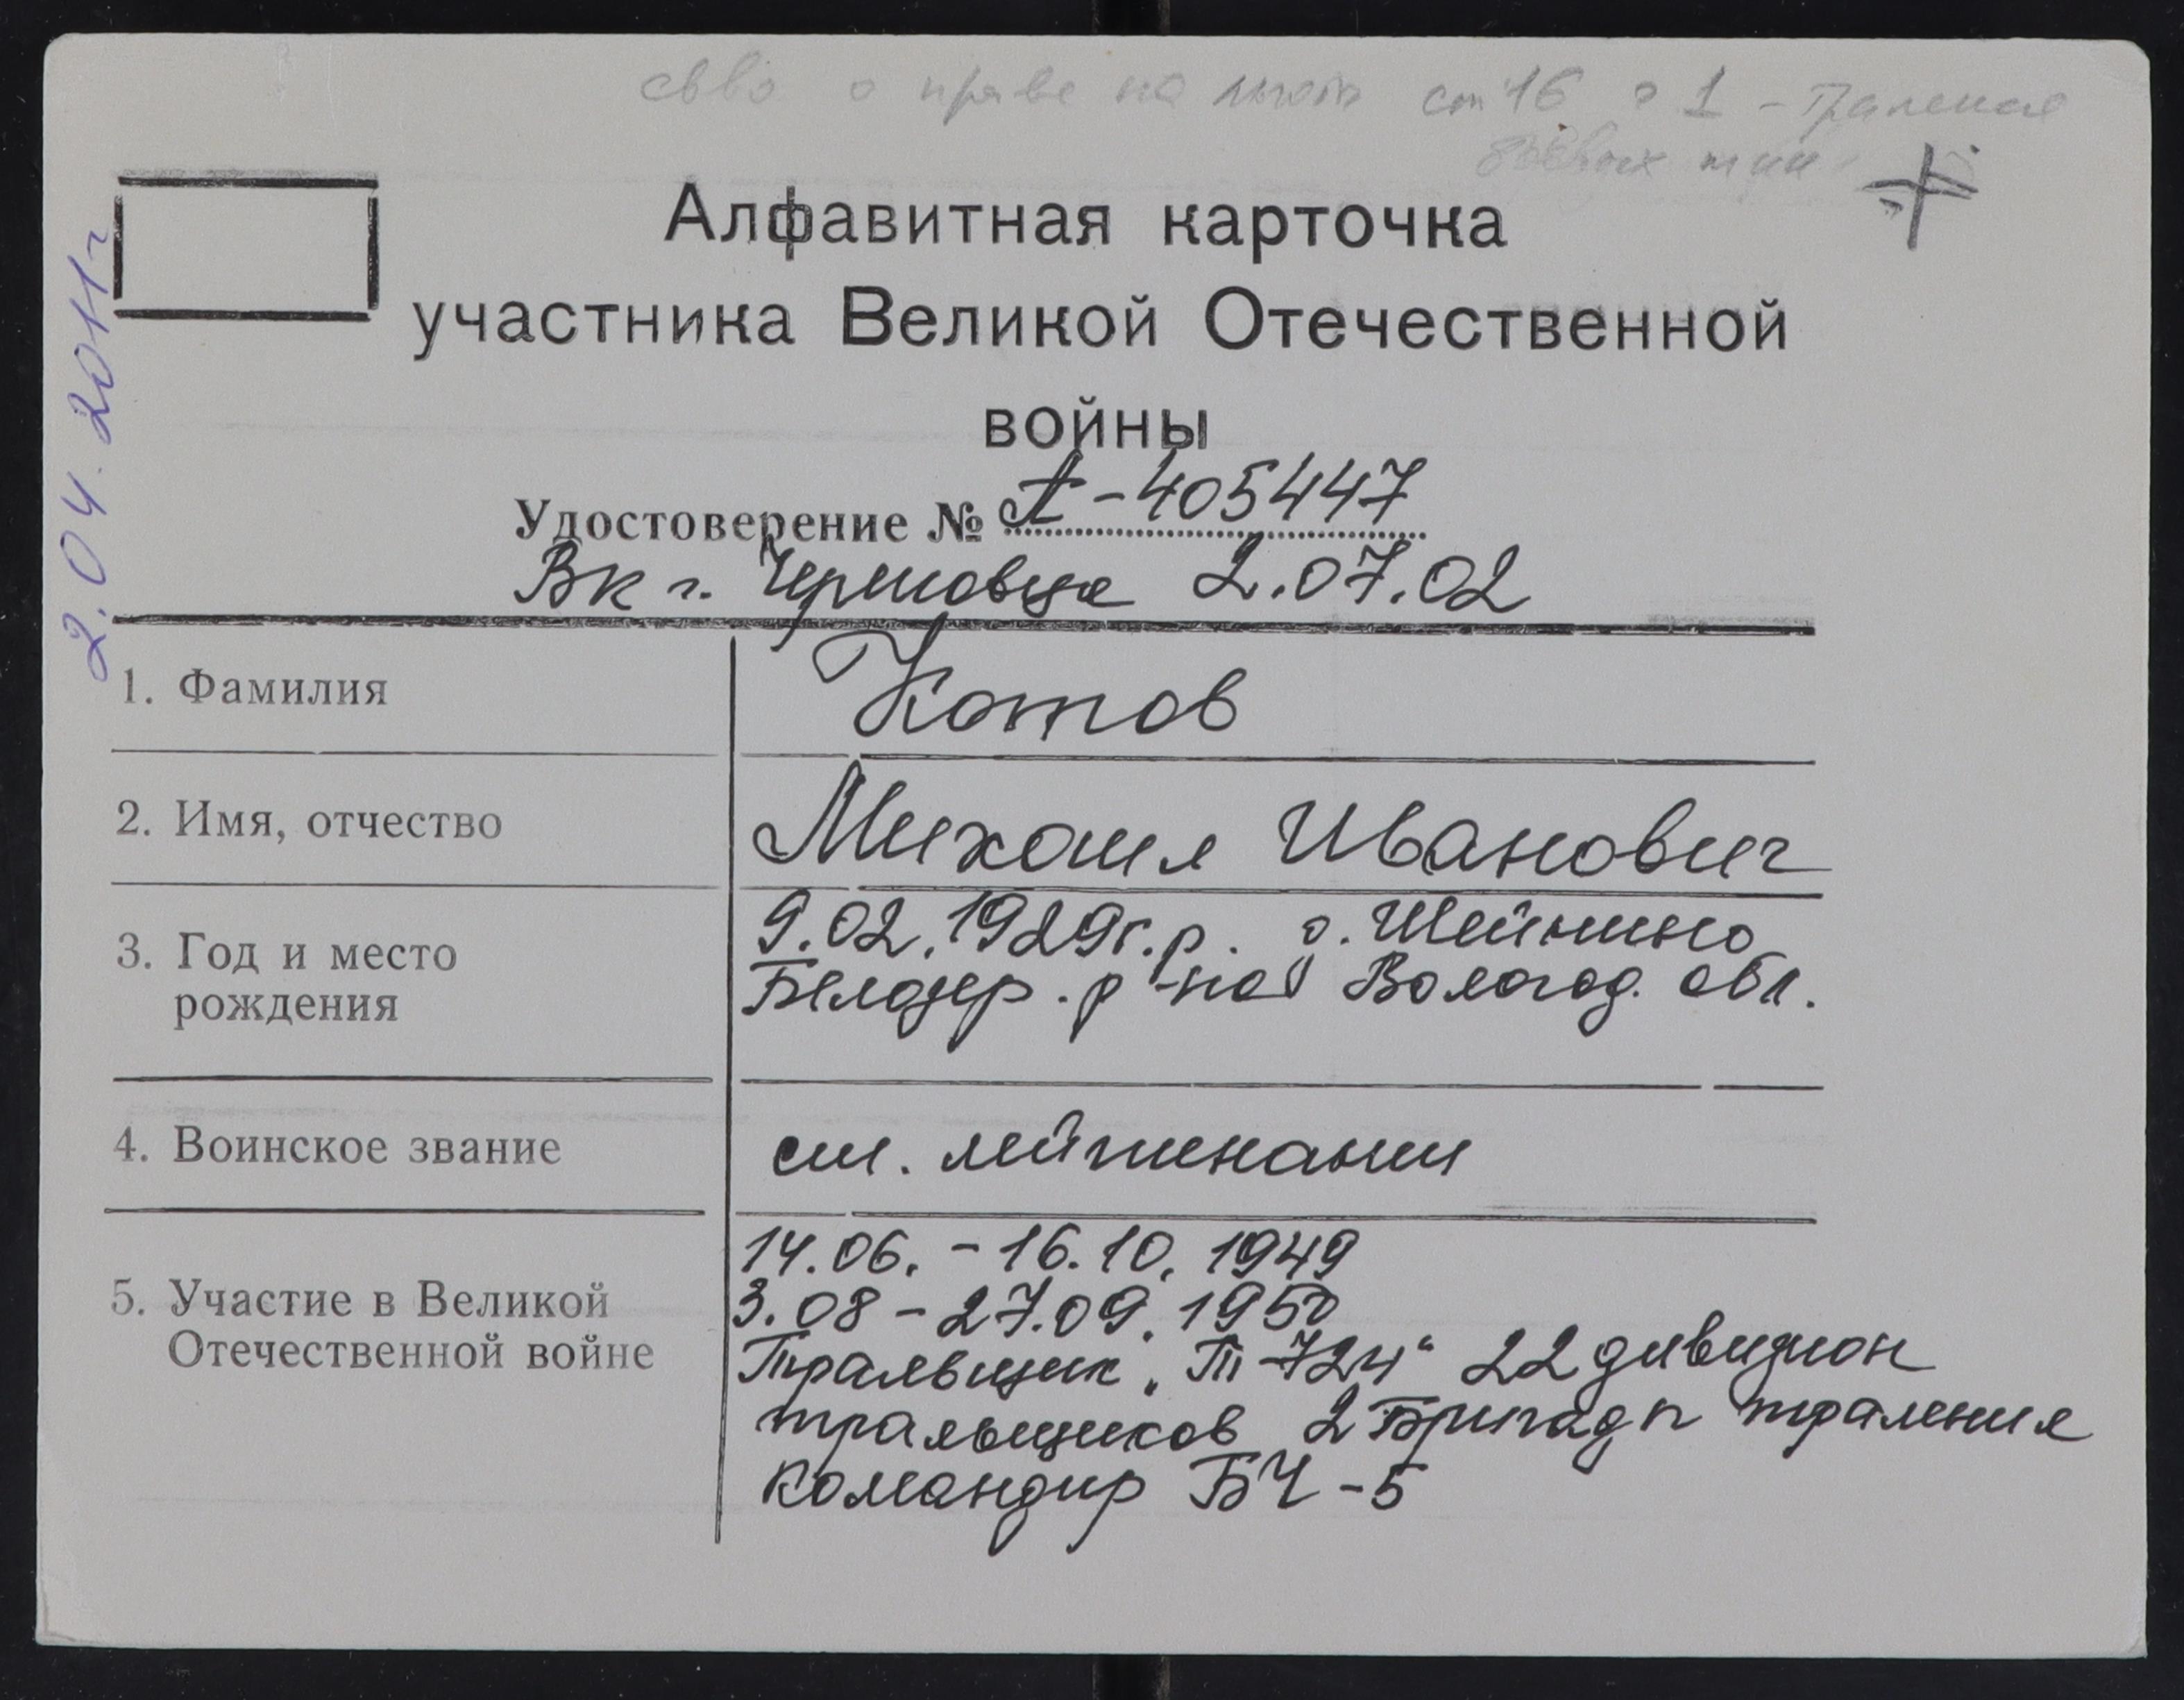 св-во о праве на льготы ст 16 п 1 - Траление
боевых мин
2.04.2011г
Алфавитная карточка
участника Великой Отечественной
войны
Удостоверение № А-405447
ВК г. Череповца 2.07.02
1. Фамилия Котов
2. Имя, отчество Михаил Иванович
3. Год и место 9.02.1929г.р. д.
рождения Белозер. р-на Вологод. обл.
4. Воинское звание ст. лейтенант
14.06. - 16.10. 1949
5. Участие в Великой 3.08 - 27.09. 1950
Отечественной войне Тральщик „Т-724“ 22 дивизион
тральщиков 2 Бригады траления
командир БЧ-5